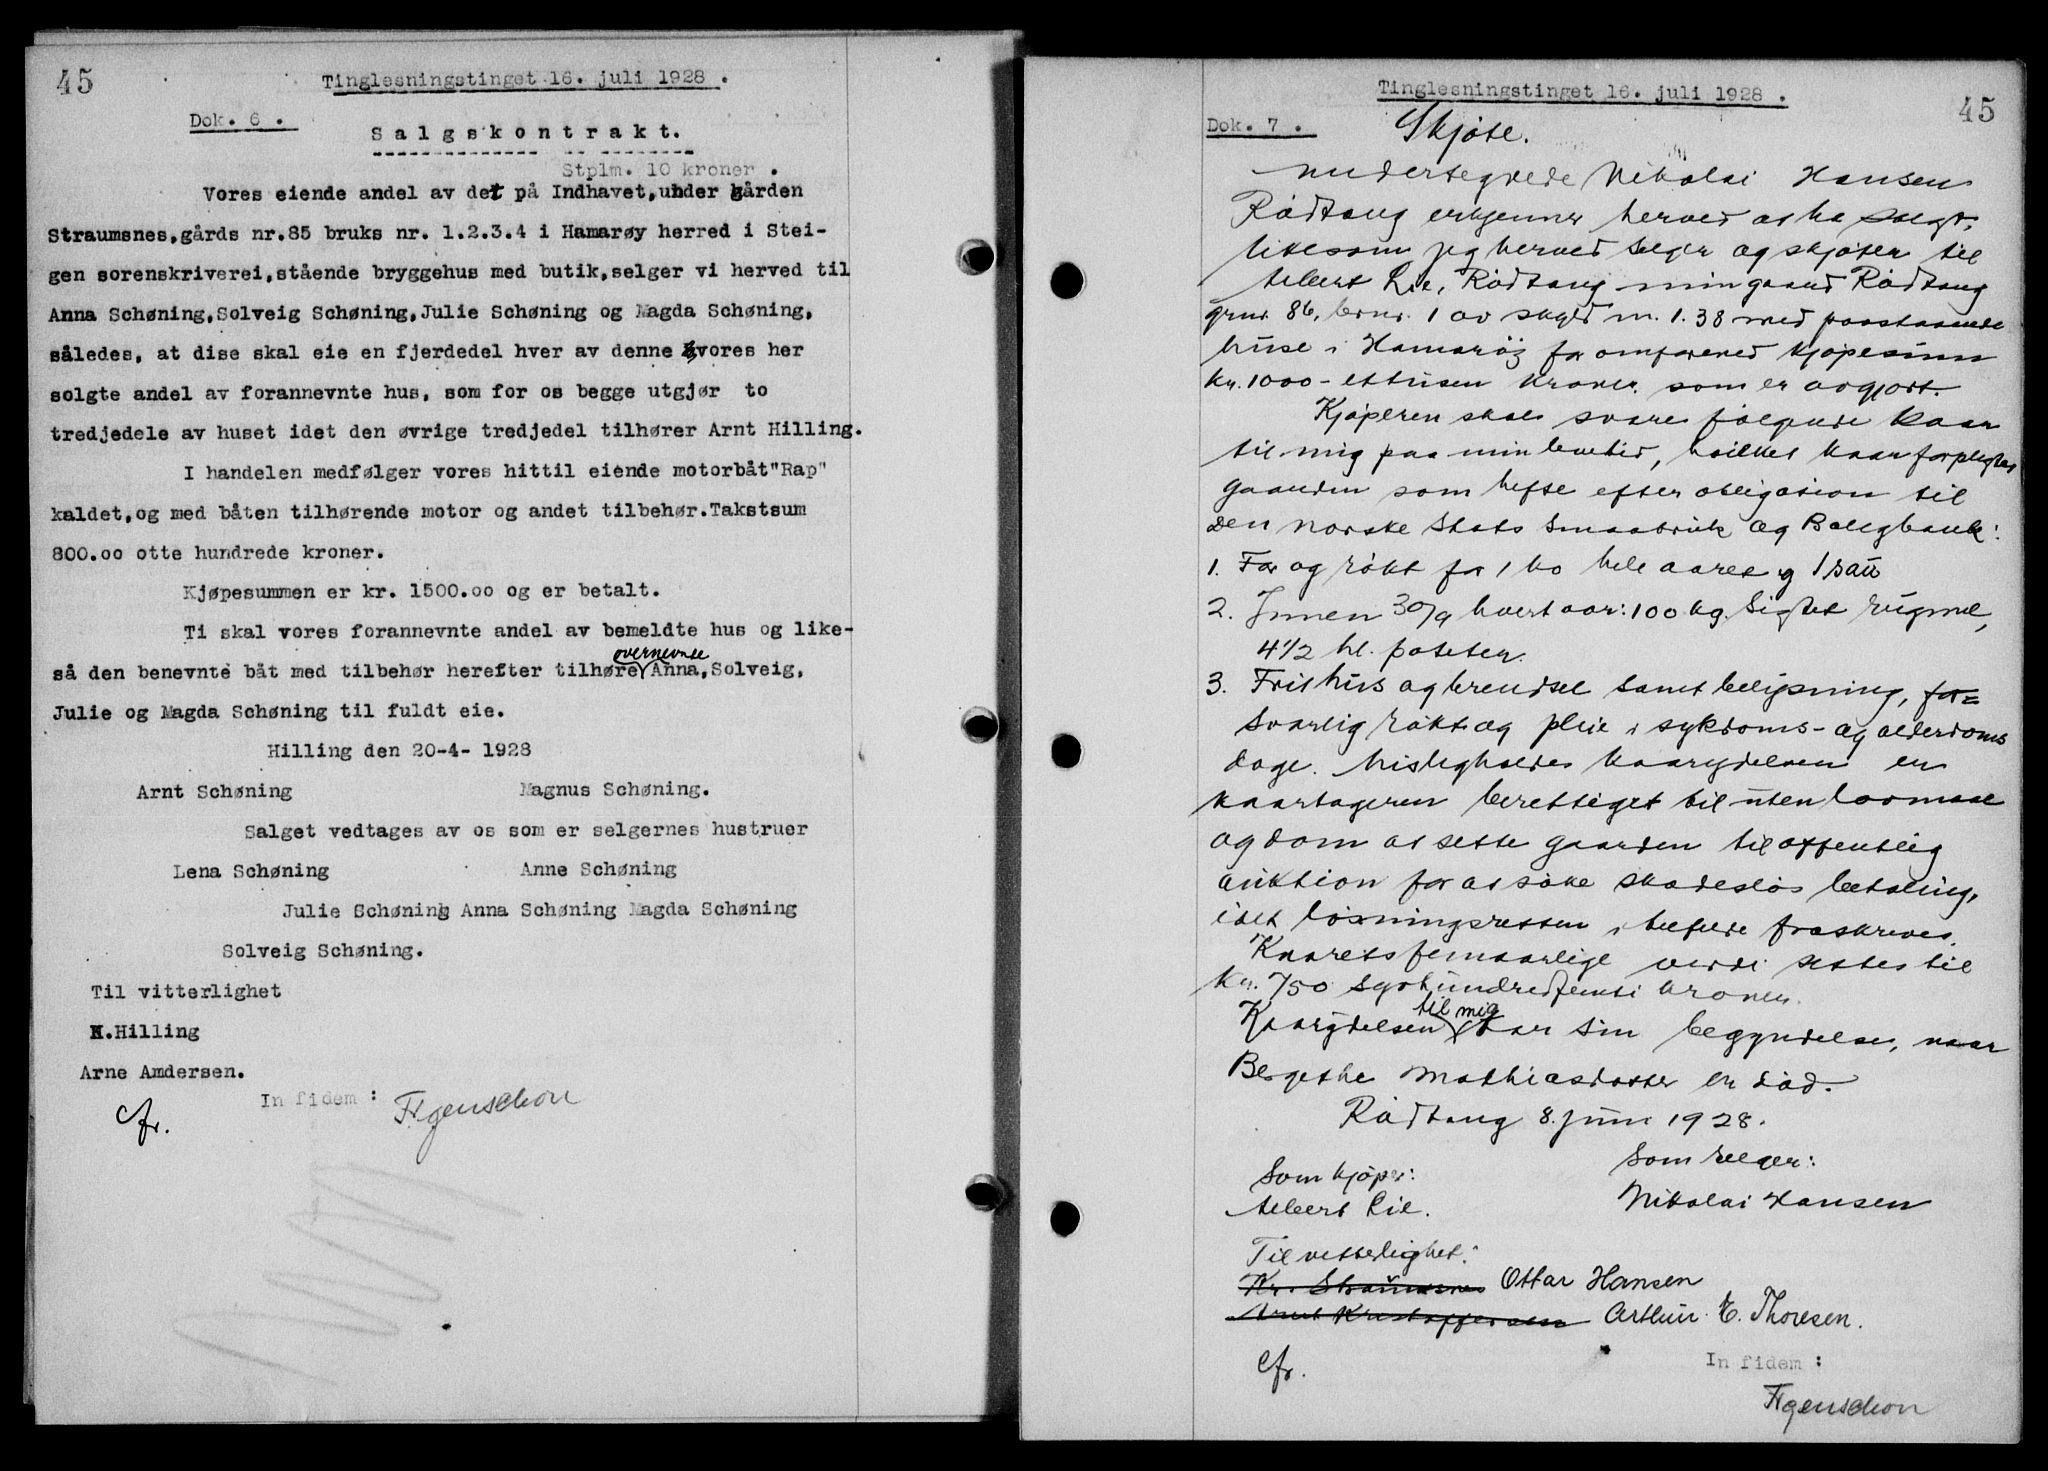 45
Tinglesningstinget 16. juli 1928 .
Dok. 6 .
Salgskontrakt.
Stplm. 10 kroner .
Vores eiende andel av det på Indhavet,under gården
Straumsnes,gårds nr.85 bruks nr. 1.2.3.4 i Hamarøy herred i Stei-
gen sorenskriverei,stående bryggehus med butik,selger vi herved til
Anna Schøning,Solveig Schøning,Julie Schøning og Magda Schøning,
således, at dise skal eie en fjerdedel hver av denne vores her
solgte andel av forannevnte hus, som for os begge utgjør to
tredjedele av huset idet den øvrige tredjedel tilhører Arnt Hilling.
I handelen medfølger vores hittil eiende motorbåt"Rap"
kaldet,og med båten tilhørende motor og andet tilbehør.Takstsum
800.oo otte hundrede kroner.
Kjøpesummen er kr. 1500.oo og er betalt.
Ti skal vores forannevnte andel av bemeldte hus og like-
overnevnte
så den benevnte båt med tilbehør herefter tilhøre Anna,Solveig,
Julie og Magda Schøning til fuldt eie.
Hilling den 20-4- 1928
Arnt Schøning Magnus Schøning.
Salget vedtages av os som er selgernes hustruer
Lena Schøning Anne Schøning
Julie Schøning Anna Schøning Magda Schøning
Solveig Schøning.
Til vitterlighet
N.Hilling
Arne Amdersen.
In fidem :
Cfr.
Tinglesningstinget 16. juli 1928 .
45
Dok. 7 .
Skjøte.
undertegnede Nikolai Hansen
Rødtang erkjenner herved at ha solgt,
likesom jeg herved selger og skjøter til
Albert Lie, Rødtang min gaard Rødtang
grnr. 86, brnr. 1 av skyld m. 1.38 med paastaaende
huse i Hamarøy for omforened kjøpesum
kr. 1000 - ettusen kroner som er avgjort.
Kjøperen skal svare følgende kaar
til mig paa min levetid, hvilket kaar forplegtes
gaarden som hefte efter obligation til
den norske Stats Smaabruk og Boligbank:
1. For og røkt for 1 ko hele aaret og 1 sau
2. Innen 30/9 hvert aar: 100 kg. sigtet rugmel,
4 1/2 hl. poteter.
3. Frit hus og brendsel samt belysning, for=
svarlig røkt og pleie i sykdoms- og alderdoms
dage. Misligholdes kaarydelsen er
kaartageren berettiget til uten lovmaal
og dom at sette gaarden til offentlig
auktion for at søke skadesløs betaling,
idet løsningsretten i tilfelde fraskrives.
Kaarets femaarlige verdi settes til
Kr. 750 syvhundredfemti kroner.
til mig
Kaarydelsen tar sin begyndelse, naar
Bergethe Mathiasdatter er død.
Rødtang 8. juni 1928.
Som kjøper: Som selger:
Albert Lie. Nikolai Hansen
Til vitterlighet:
Kr. Straumsnes Ottar Hansen
Arnt Kristoffersen Arthur E. Thoresen.
Cfr.
In fidem :